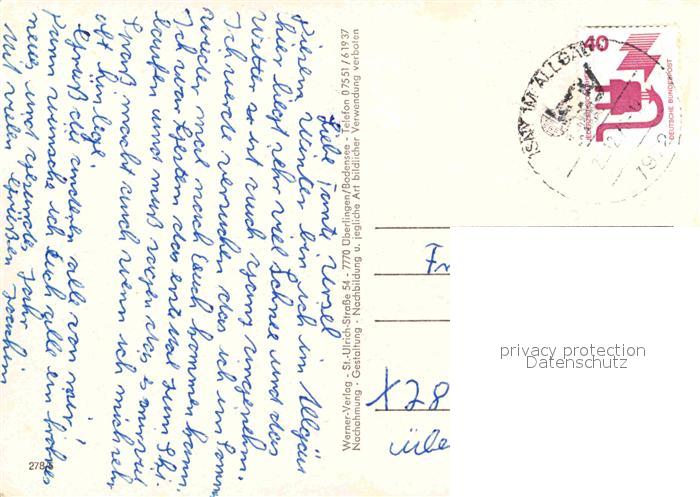 Liebe Tante Ursel
Diesen Winter bin ich im Allgäu
hier liegt sehr viel Schnee und das
Wetter ist auch ganz angenehm.
Ich werde versuchen das ich im Sommer
wieder mal nach Euch kommen kann.
Ich war Gestern das erste mal zum Ski-
laufen und muß sagen das es mir viel
Spaß macht auch wenn ich mich sehr
oft hin lege
Grüß die anderen alle von mir,
dann wünsche ich Euch alle ein frohes
neues und gesundes Jahr
mit vielen Grüßen Joachim
278/5
Werner-Verlag - St.-Ulrich-Straße 54 - 7770 Überlingen/Bodensee - Telefon 0 75 51 / 6 19 37
Nachahmung - Gestaltung - Nachbildung u. jegliche Art bildlicher Verwendung verboten
ISNY IM ALLGÄU
40
DEUTSCHE BUNDESPOST
Fr
X 28
übe
privacy protection
Datenschutz